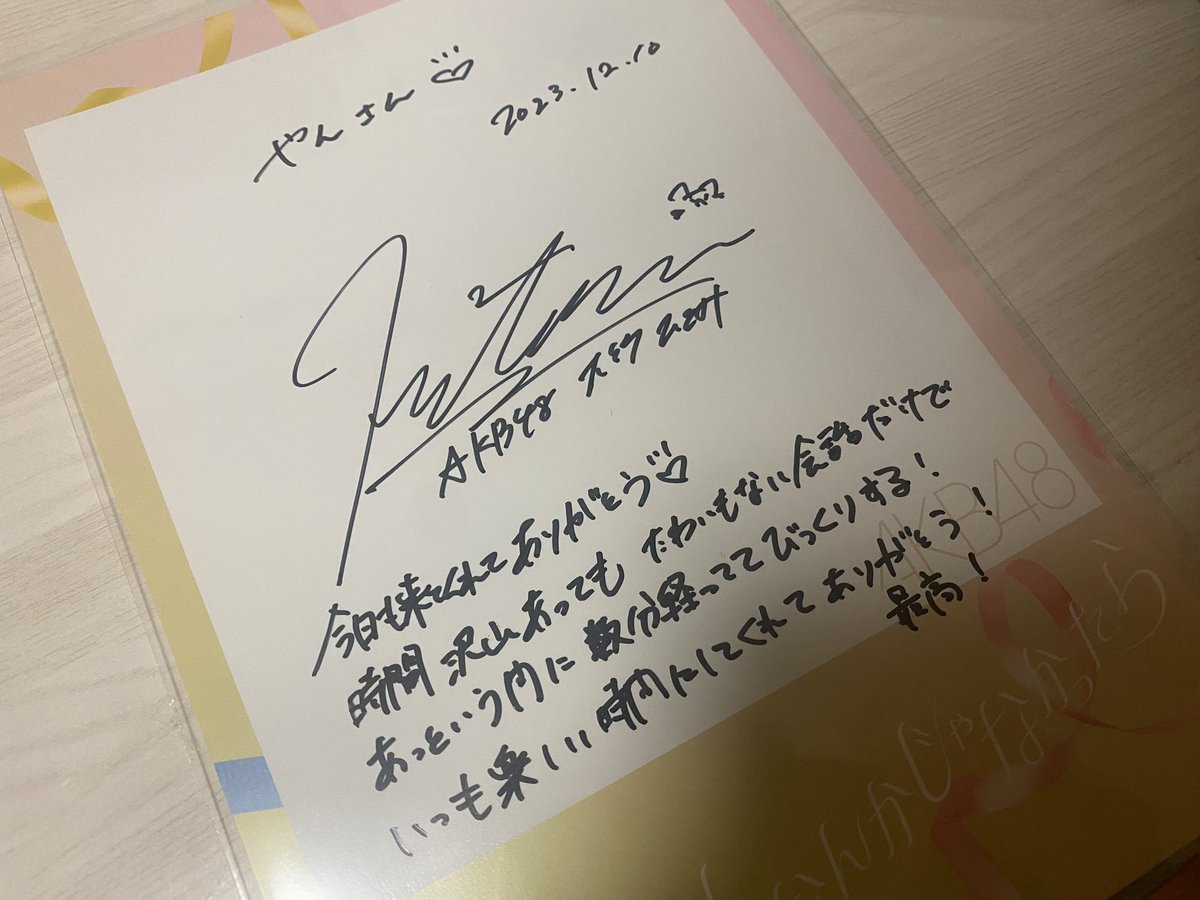 やんさん♡
2023.12.10
AKB48
今日も来てくれてありがとう♡
時間 沢山あっても たわいもない会話だけで
あっという間に 数分経っててびっくりする!
いつも楽しい時間にしてくれてありがとう!
最高!
AKB48
んかじゃなかったら